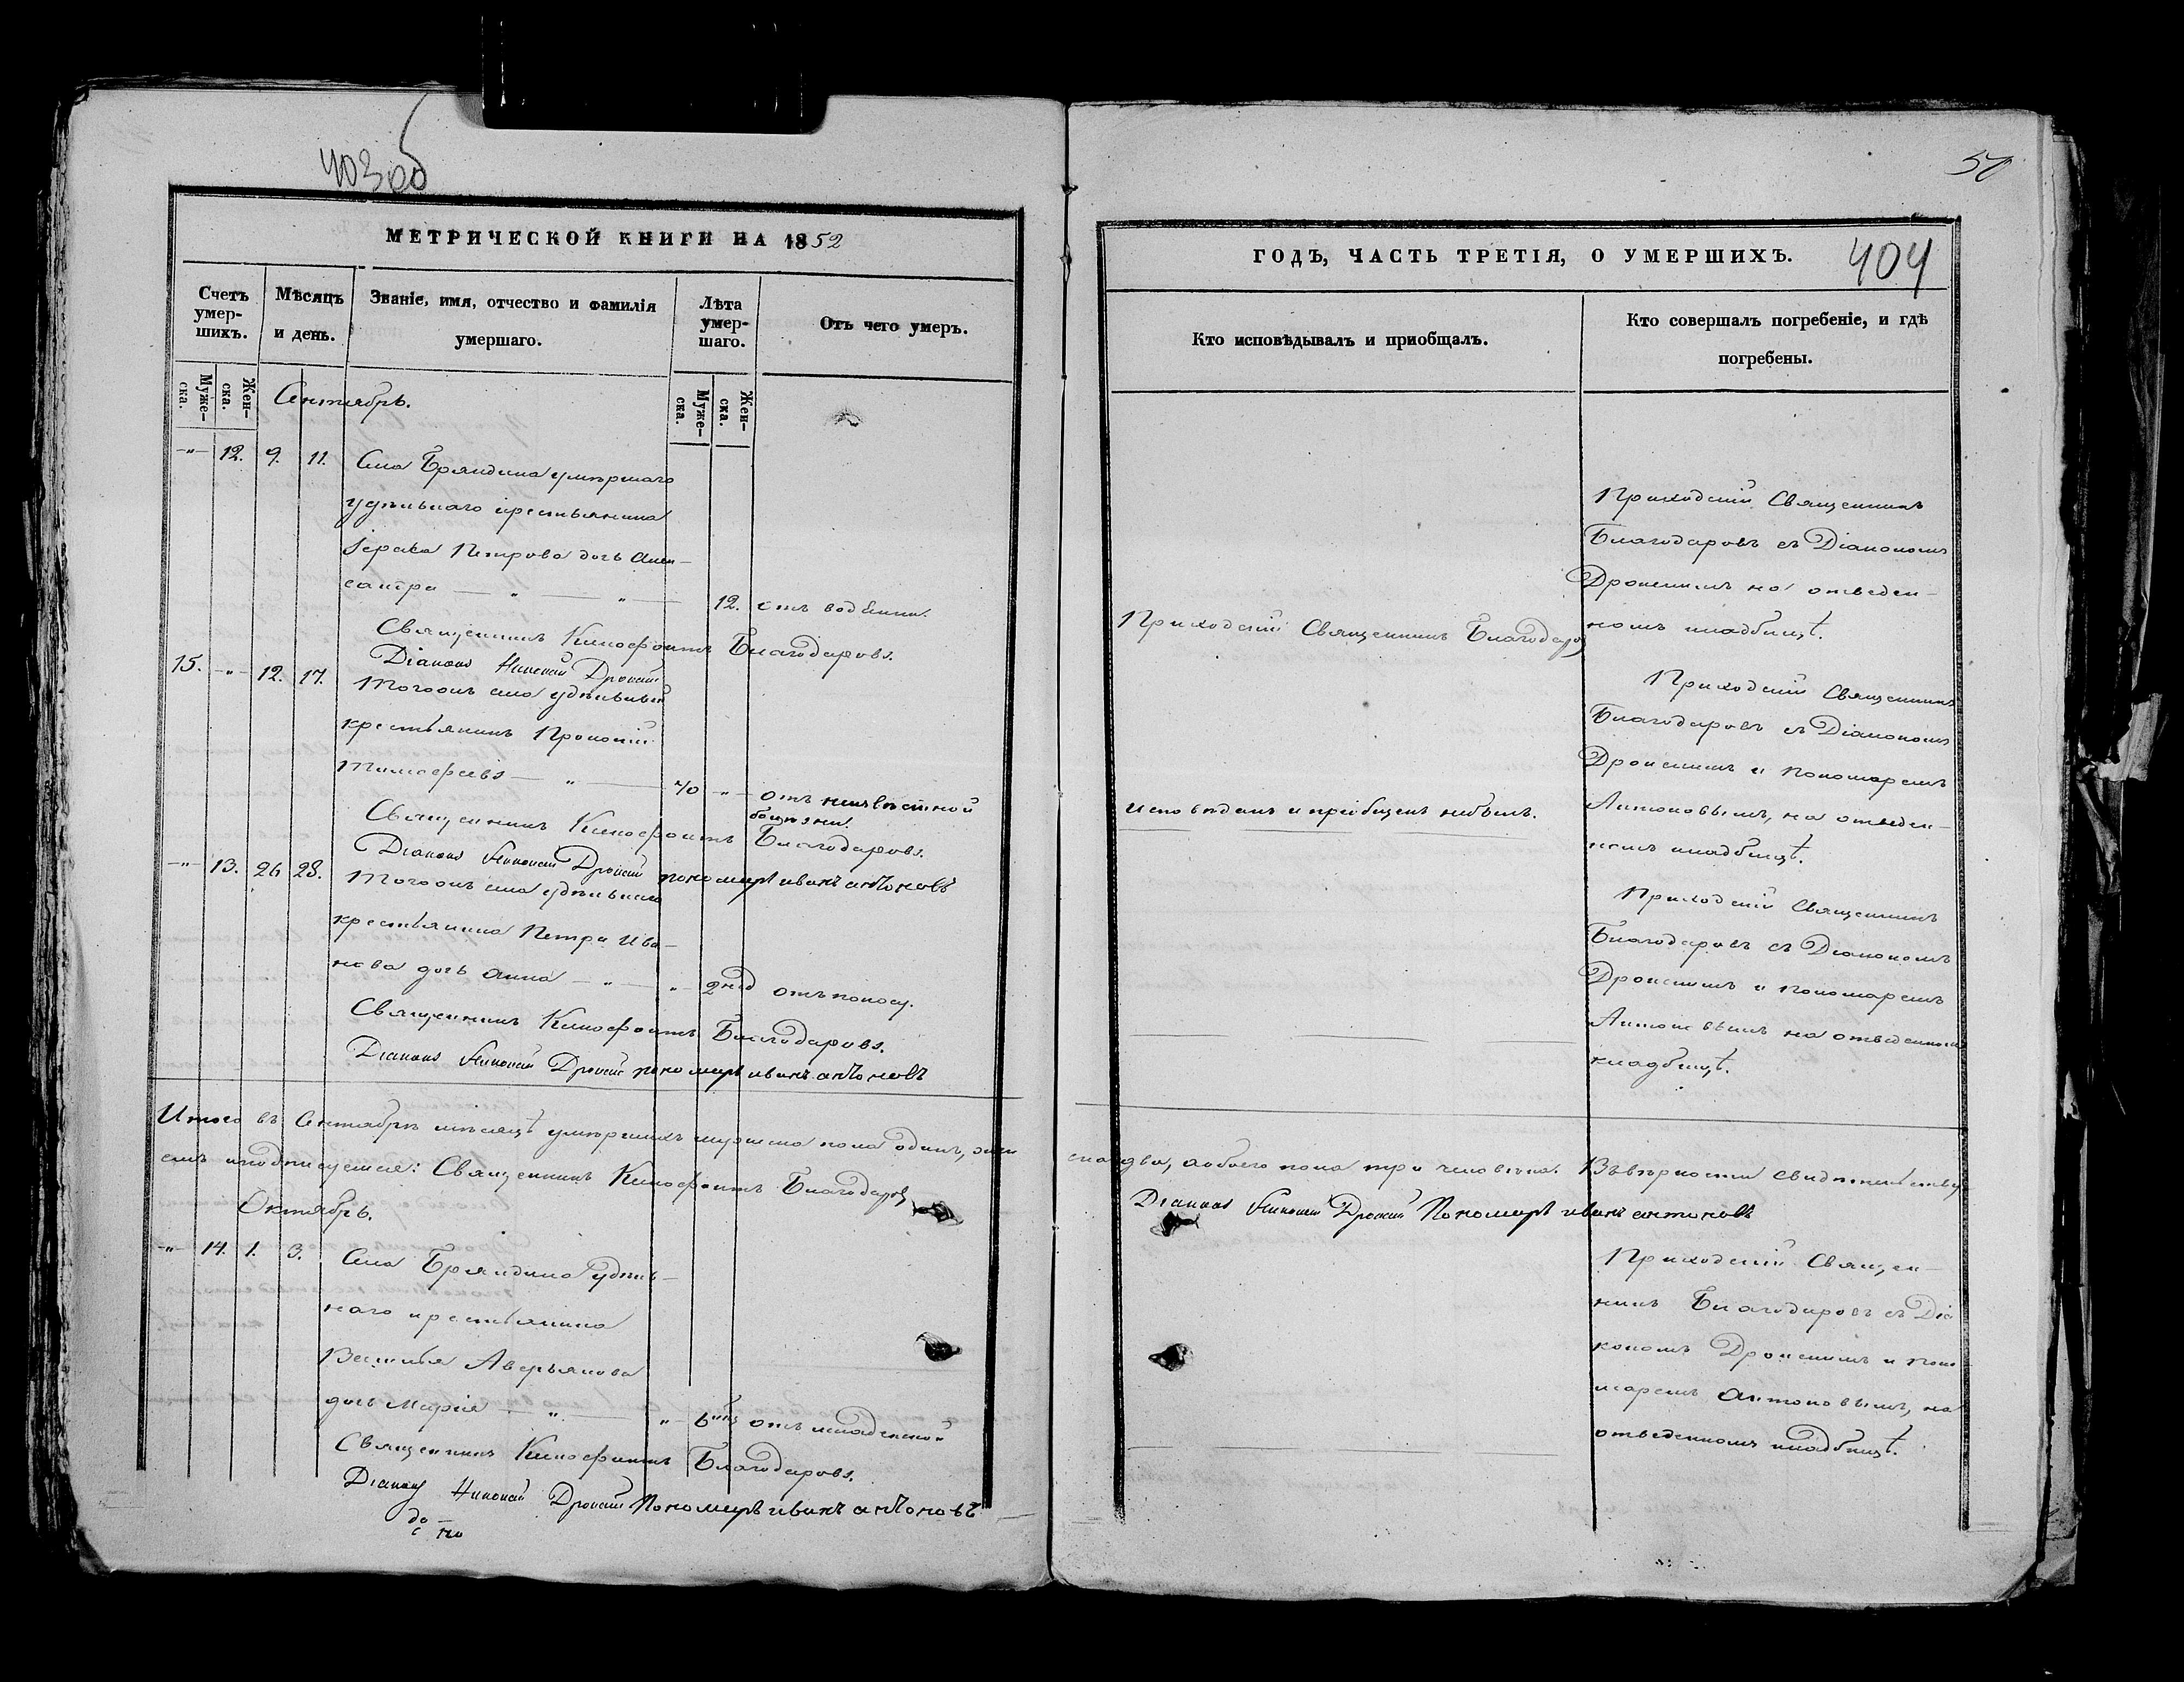 403об
МЕТРИЧЕСКОЙ КНИГИ НА 1852
Счетъ умер-шихъ.
Мѣсяцъ и день.
Званіе, имя, отчество и фамилія умершаго.
Лѣта умер-шаго.
Отъ чего умеръ.
Муже-ска.
Жен-ска.
Муже-ска.
Жен-ска.
Сентябрь.
-"- 12. 9. 11. Села Бряндина умершаго
удѣльнаго крестьянина
Петрова дочь Алек-
сантра — " — " — 12. отъ водянки.
Священникъ Ксенофонтъ Благодаровъ.
Діаконъ Николай Дронинъ
15. -"- 12. 17. Тогожъ села удѣльный
крестьянинъ Прокопій
Тимофеевъ — " — 70 -"- отъ неизвѣстной
болѣзни.
Священникъ Ксенофонтъ Благодаровъ.
Діаконъ Николай Дронинъ пономарь иванъ антоновъ
-"- 13. 26 28. Тогожъ села удѣльнаго
крестьянина Петра Ива-
нова дочь Анна — " — " — 2 нед отъ поносу.
Священникъ Ксенофонтъ Благодаровъ.
Діаконъ Николай Дронинъ пономарь иванъ антоновъ
Итого въ Сентябрѣ мѣсяцѣ умершихъ мужеска пола одинъ, жен
емъ иподписуемся: Священникъ Ксенофонтъ Благодаровъ
Октябрь.
-"- 14. 1. 3. Села Бряндина удѣль-
наго крестьянина
Василья Аверьянова
дочь Марія — " — " — 6 отъ младенской
Священникъ Ксенофонтъ Благодаровъ.
Діаконъ Николай Дронинъ Пономарь иванъ антоновъ
50
404
ГОДЪ, ЧАСТЬ ТРЕТІЯ, О УМЕРШИХЪ.
Кто исповѣдывалъ и пріобщалъ.
Кто совершалъ погребеніе, и гдѣ погребены.
Приходскій Священникъ
Благодаровъ съ Діакономъ
Дронинымъ на отведен-
номъ кладбищѣ.
Приходскій Священникъ Благодаровъ
Приходскій Священникъ
Благодаровъ съ Діакономъ
Дронинымъ и пономаремъ
Антоновымъ, на отведен-
номъ кладбищѣ.
исповѣданъ и пріобщенъ небылъ.
Приходскій Священникъ
Благодаровъ съ Діакономъ
Дронинымъ и пономаремъ
Антоновымъ на отведенномъ
кладбищѣ.
ска два, аобоего пола три человѣка. Въвѣрности свидѣтельству-
Діаконъ Николай Дронинъ Пономарь иванъ антоновъ
Приходскій Священ-
никъ Благодаровъ съ Діа
кономъ Дронинымъ и поно
маремъ Антоновымъ, на
отведенномъ кладбищѣ.